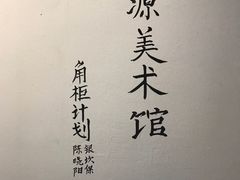 源美术馆
角柜计划
银坎保
陈晓阳